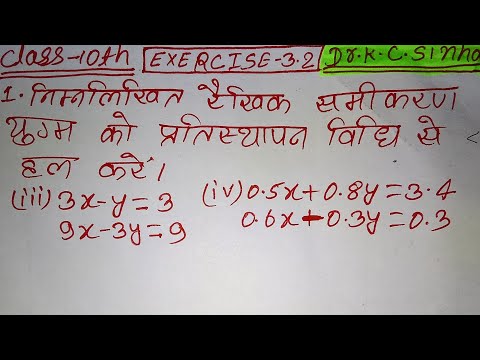 Class-10th EXERCISE-3.2 Dr.K.C.Sinha
1. निम्नलिखित रैखिक समीकरण
युग्म को प्रतिस्थापन विधि से
हल करें।
(iii) 3x-y=3 (iv) 0.5x+0.8y=3.4
9x-3y=9 0.6x-0.3y=0.3